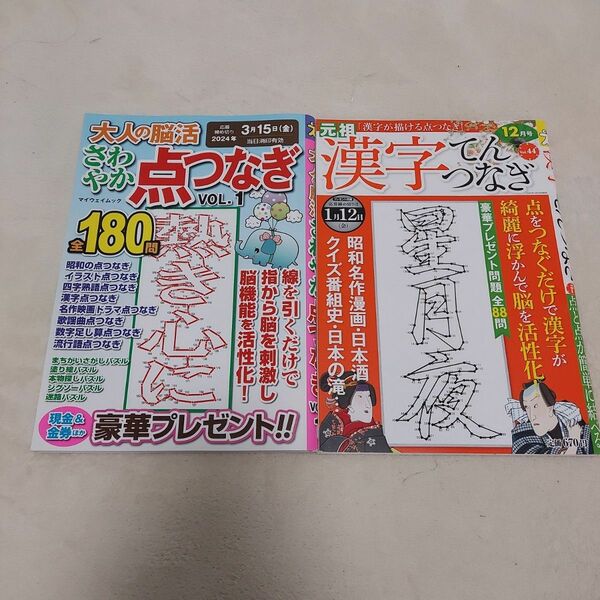 大人の脳活
応募締め切り
2024年
3月15日(金)
当日消印有効
さわやか
点つなぎ
VOL.1
マイウェイムック
全180問
熱き心に
昭和の点つなぎ
イラスト点つなぎ
四字熟語点つなぎ
漢字点つなぎ
名作映画ドラマ点つなぎ
歌謡曲点つなぎ
数字足し算点つなぎ
流行語点つなぎ
まちがいさがしパズル
塗り絵パズル
本物探しパズル
ジグソーパズル
迷路パズル
線を引くだけで
指から脳を刺激し
脳機能を活性化!
現金&
金券ほか
豪華プレゼント!!
元祖
「漢字が描ける点つなぎ」
12月号
Vol.44
漢字てんつなぎ
1月12日
(金)
星月夜
点をつなぐだけで漢字が
綺麗に浮かんで脳を活性化!
豪華プレゼント問題 全88問
昭和名作漫画・日本酒
クイズ番組史・日本の滝
定価670円